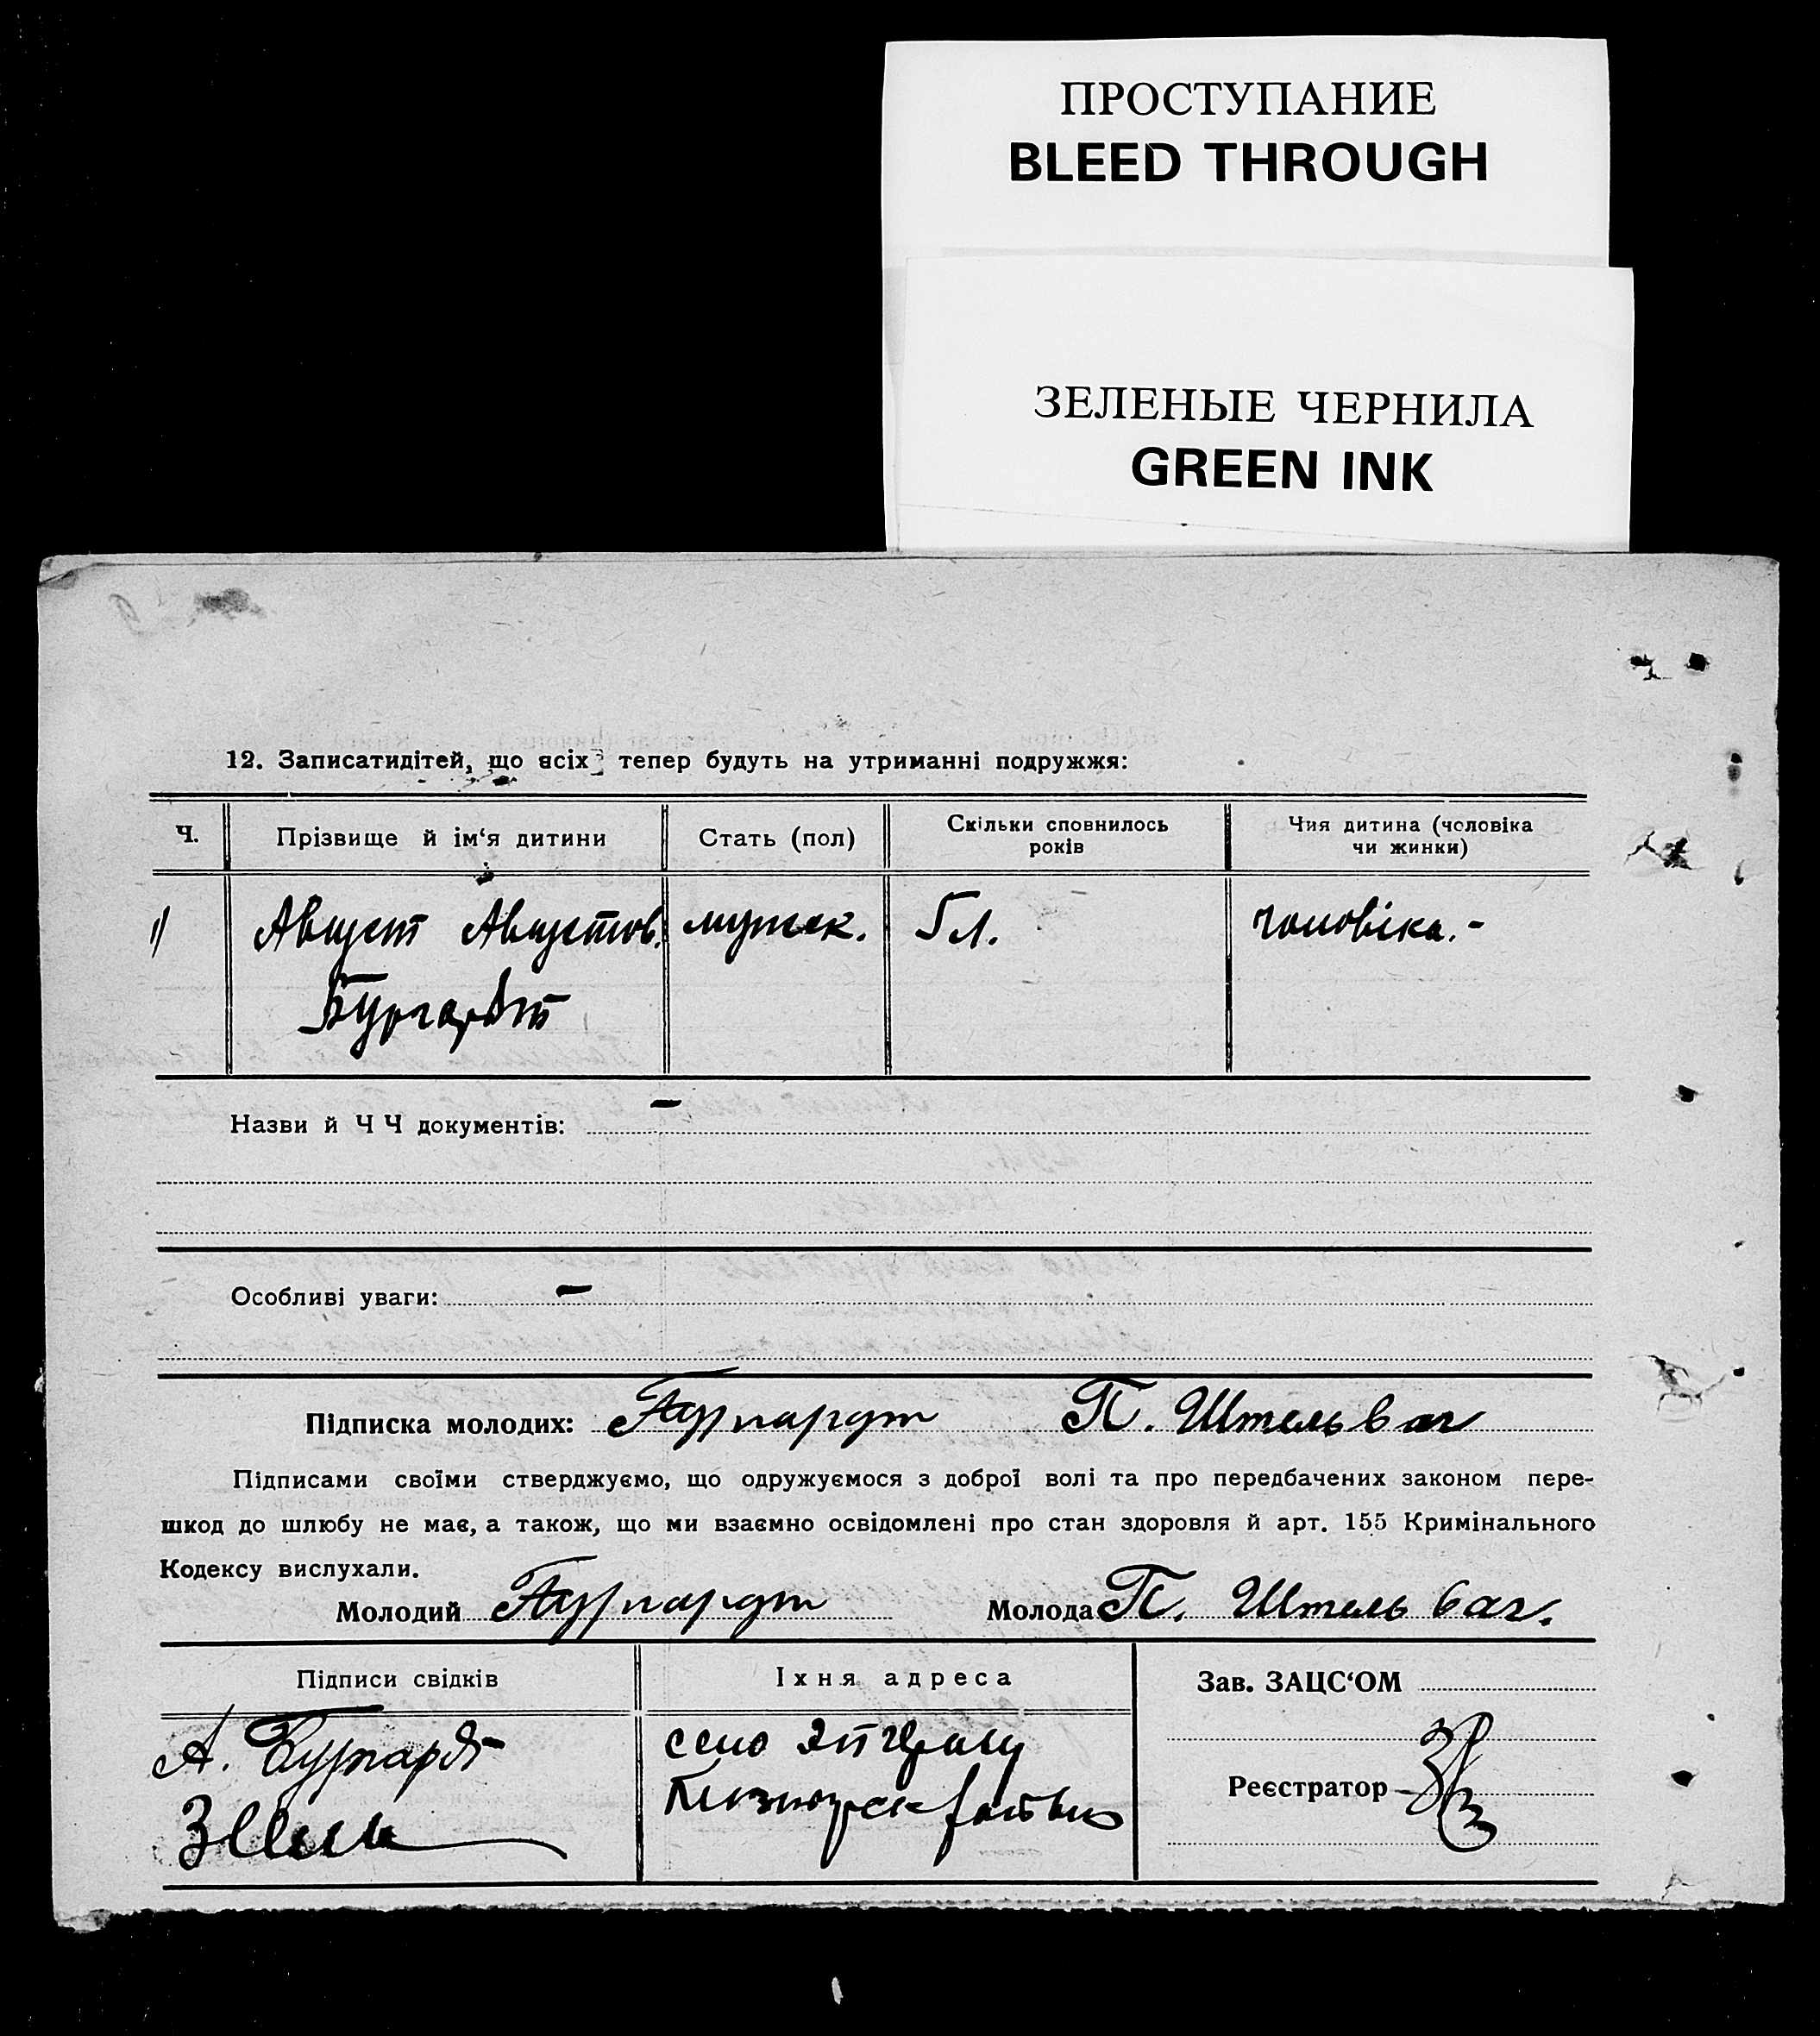 ПРОСТУПАНИЕ
BLEED THROUGH
ЗЕЛЕНЫЕ ЧЕРНИЛА
GREEN INK
12. Записатидітей, що всіх тепер будуть на утриманні подружжя:
Ч. Прізвище й ім‘я дитини Стать (пол) Скільки сповнилось років Чия дитина (чоловіка чи жинки)
1) Август Августов. мужск. 5 л. чоловіка.-
Бургардт
Назви й Ч Ч документів: –
Особливі уваги: –
Підписка молодих: Бургардт П. Штельвах
Підписами своїми стверджуємо, що одружуємося з доброї волі та про передбачених законом пере-
шкод до шлюбу не має, а також, що ми взаємно освідомлені про стан здоровля й арт. 155 Кримінального
Кодексу вислухали.
Молодий Бургардт Молода П. Штельвах.
Підписи свідків Їхня адреса Зав. ЗАЦС‘ОМ
А. Бургардт село
Реєстратор